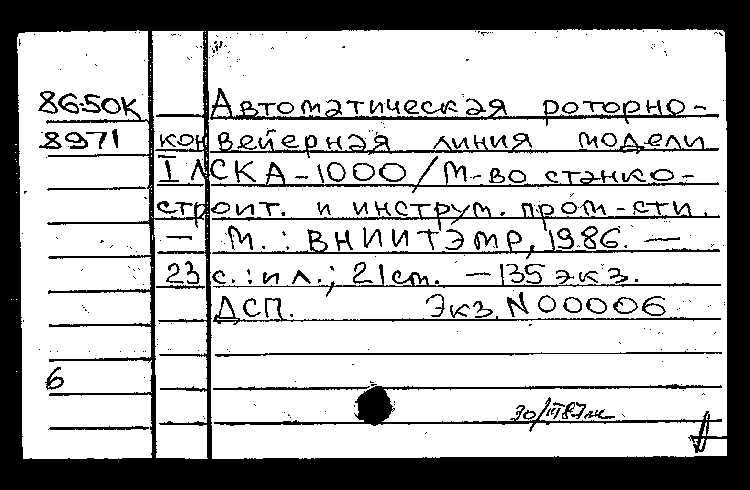 86-50К Автоматическая роторно-
8971 конвейерная линия модели
I ЛСКА-1000/М-во станко-
строит. и инструм. пром-сти.
— М.: ВНИИТЭМР, 1986. —
23 с.: ил.; 21 ст. — 135 экз.
ДСП. Экз. N 00006
6
30/III 87